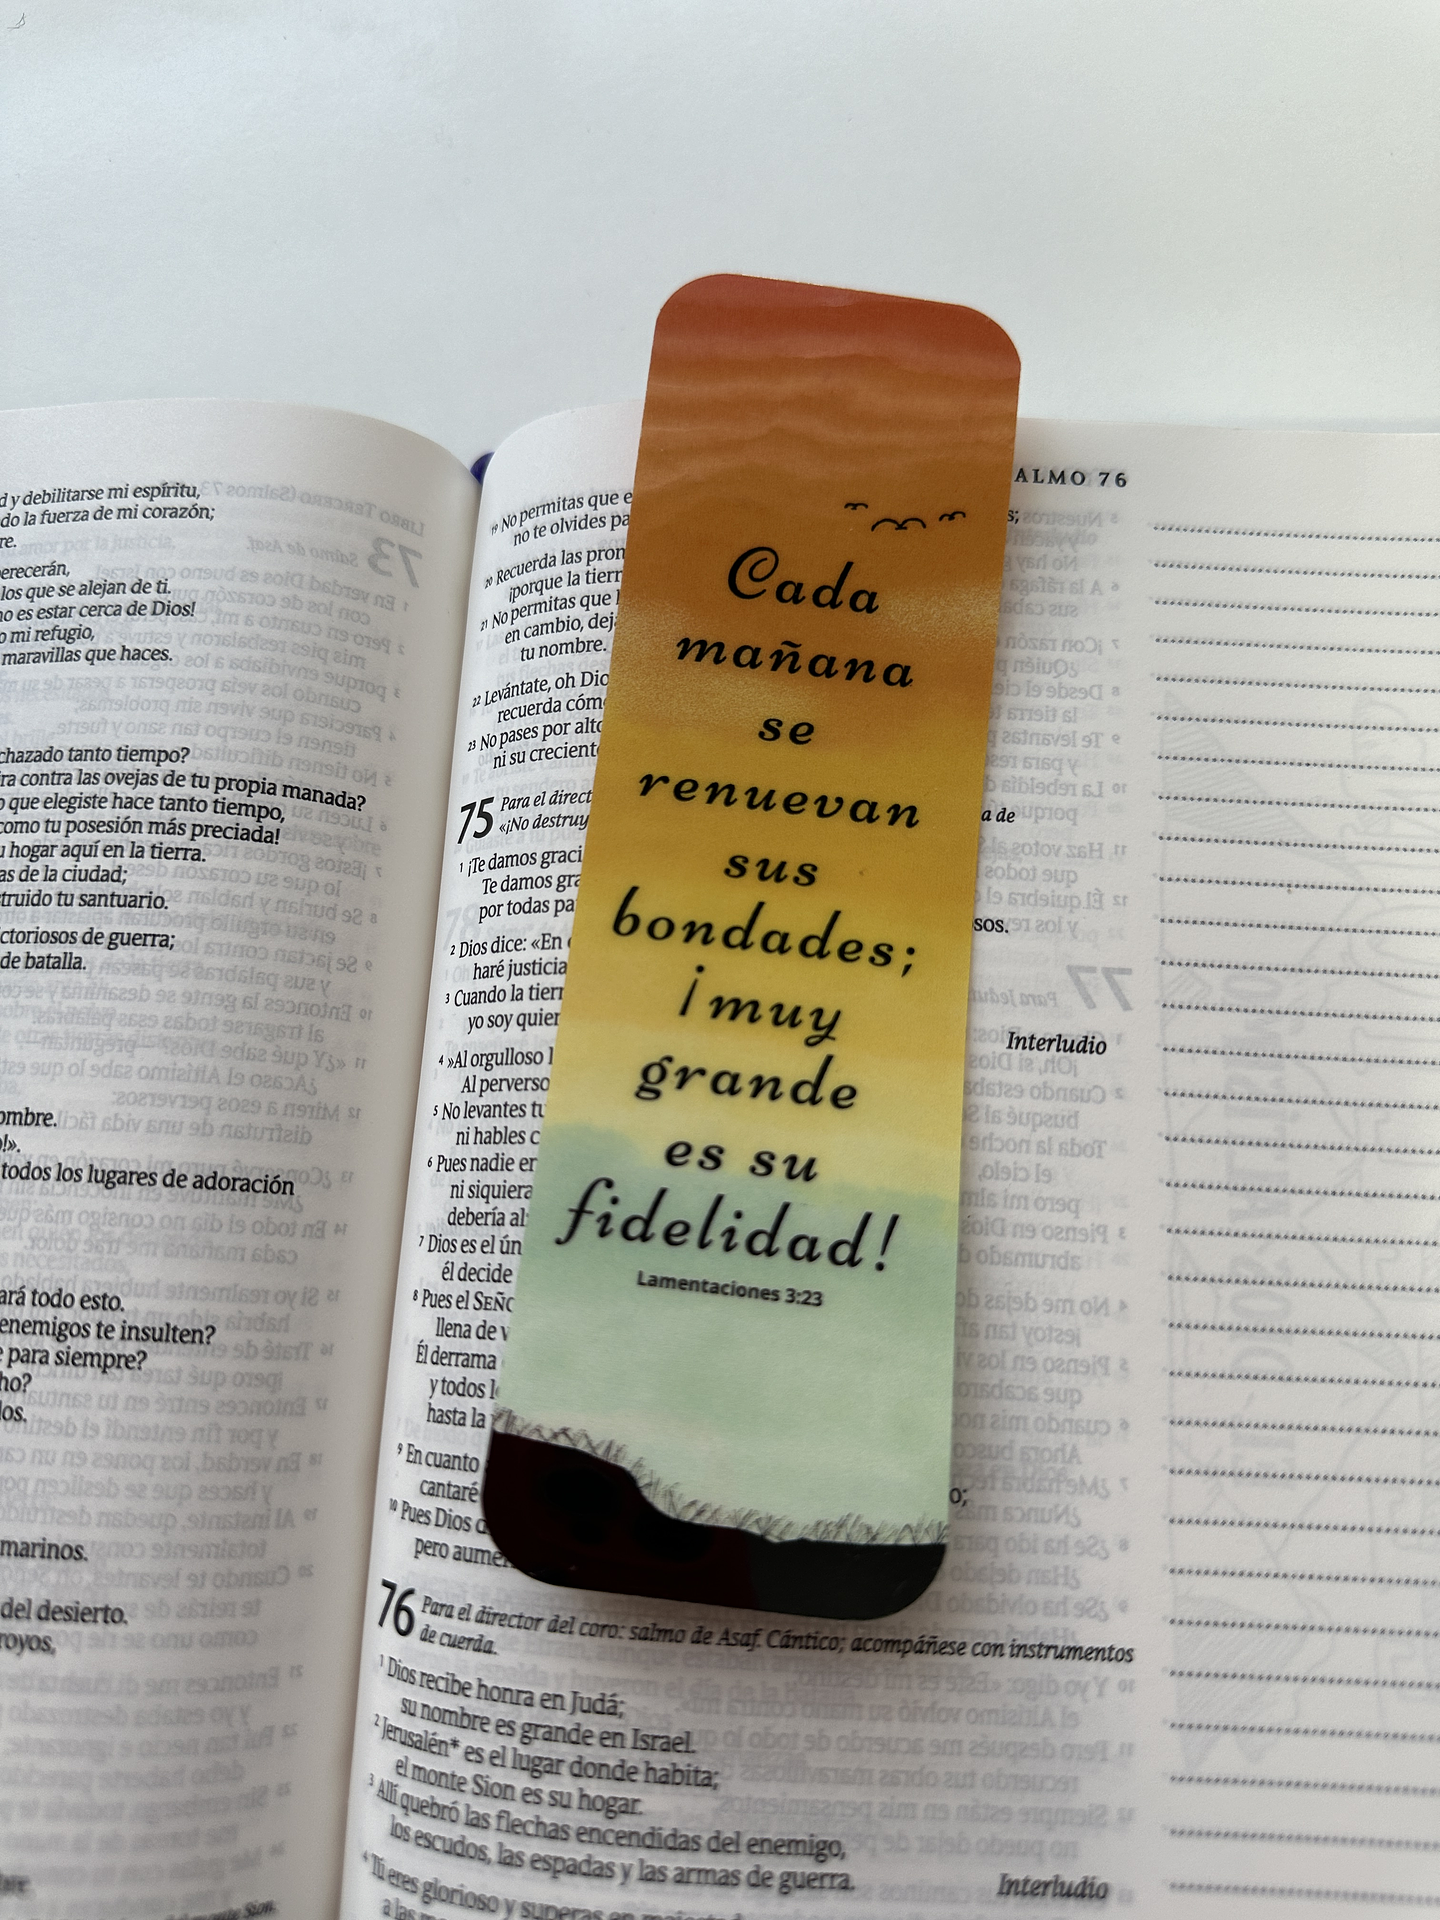 d y debilitarse mi espíritu,
do la fuerza de mi corazón;
re.
erecerán,
los que se alejan de ti.
no es estar cerca de Dios!
o mi refugio,
maravillas que haces.
chazado tanto tiempo?
ra contra las ovejas de tu propia manada?
o que elegiste hace tanto tiempo,
como tu posesión más preciada!
u hogar aquí en la tierra.
as de la ciudad;
struido tu santuario.
ctoriosos de guerra;
de batalla.
ombre.
o!».
todos los lugares de adoración
ará todo esto.
enemigos te insulten?
e para siempre?
ho?
los.
marinos.
del desierto.
royos,
ALMO 76
19 No permitas que e
no te olvides pa
20 Recuerda las pron
¡porque la tierr
21 No permitas que
en cambio, dej
tu nombre.
22 Levántate, oh Dio
recuerda cóm
23 No pases por alto
ni su creciente
75 Para el direct
«¡No destruy
1 ¡Te damos graci
Te damos gra
por todas pa
2 Dios dice: «En
haré justicia
3 Cuando la tierr
yo soy quier
4 »Al orgulloso
Al perverso
5 No levantes tu
ni hables c
6 Pues nadie en
ni siquiera
debería al
7 Dios es el ún
él decide
8 Pues el SEÑO
llena de v
Él derrama
y todos l
hasta la
9 En cuanto
cantaré
10 Pues Dios
pero aume
s;
a de
sos.
Interludio
o;
Cada
mañana
se
renuevan
sus
bondades;
¡muy
grande
es su
fidelidad!
Lamentaciones 3:23
76 Para el director del coro: salmo de Asaf. Cántico; acompáñese con instrumentos
de cuerda.
1 Dios recibe honra en Judá;
su nombre es grande en Israel.
2 Jerusalén* es el lugar donde habita;
el monte Sion es su hogar.
3 Allí quebró las flechas encendidas del enemigo,
los escudos, las espadas y las armas de guerra.
Interludio
4 Tú eres glorioso y superas en